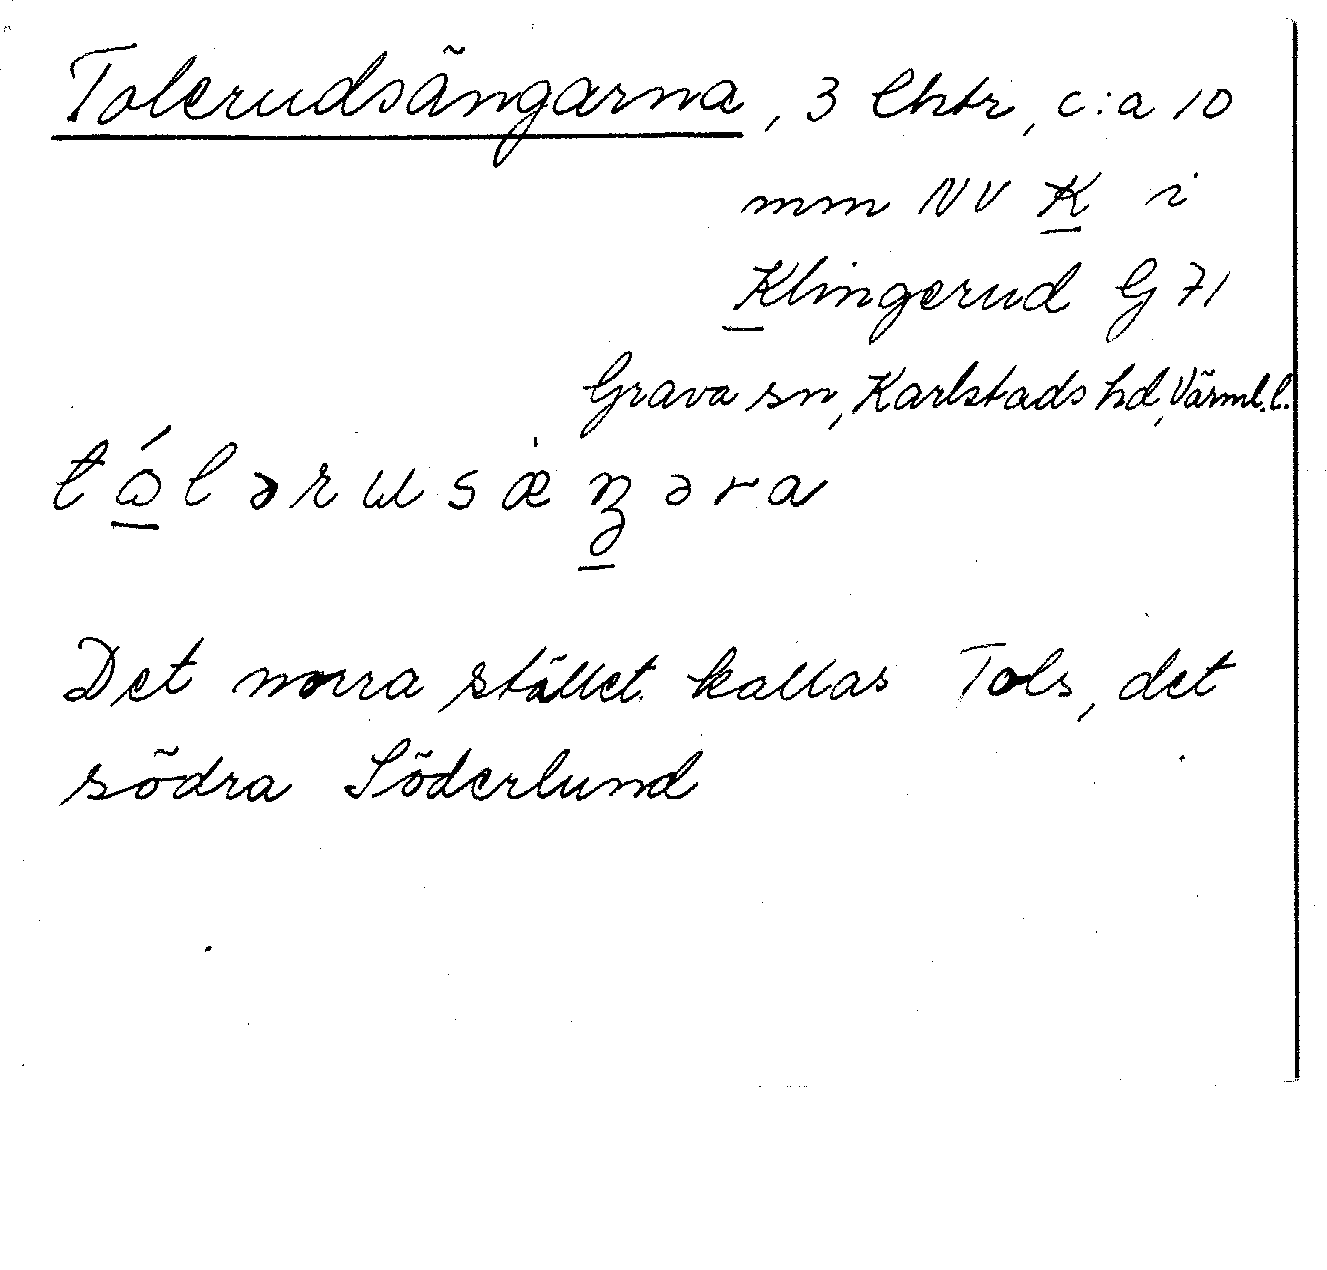 Tolerudsängarna, 3 lhtr, c:a 10
mm NV K i
Klingerud G 71
Grava sn, Karlstads hd, Värml. l.
Det norra stället kallas Tols, det
södra Söderlund